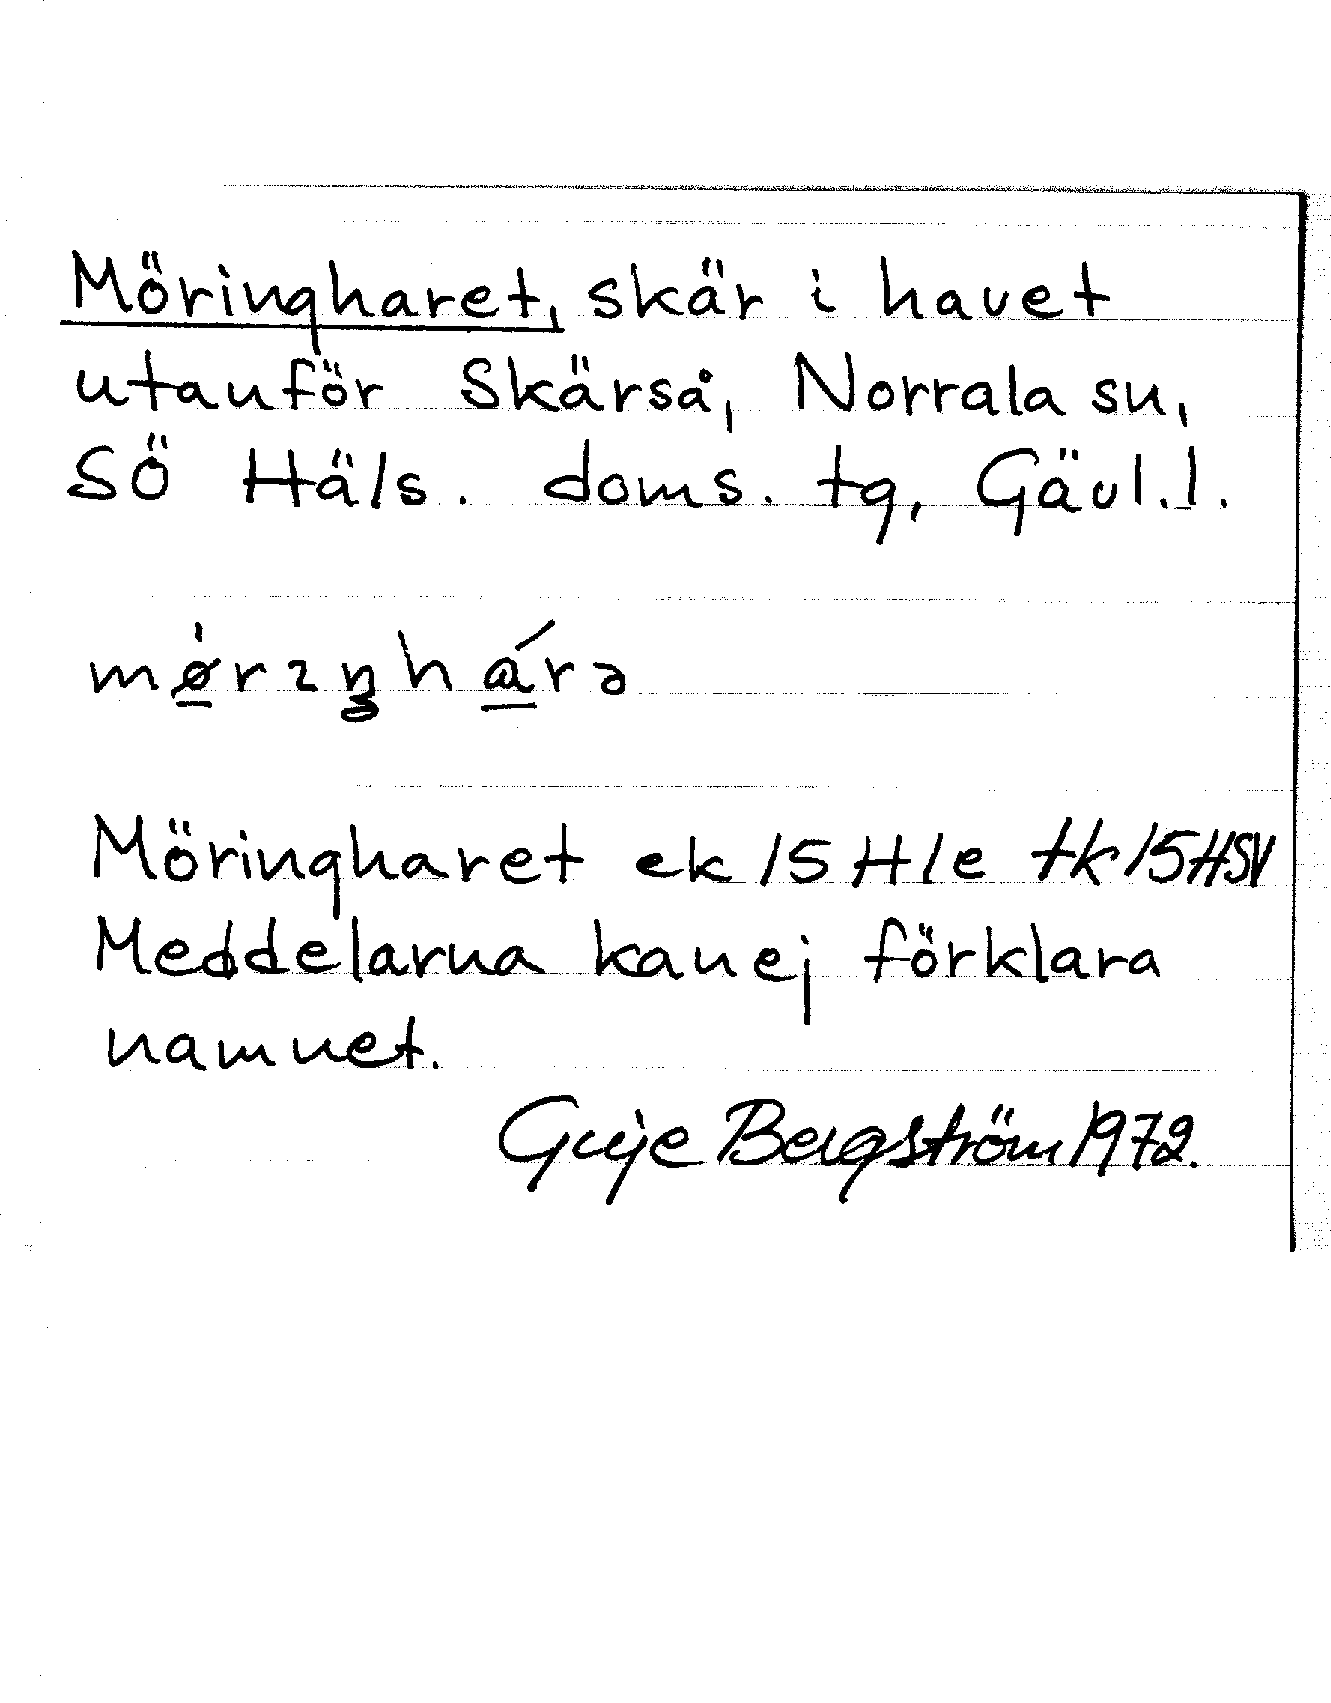 Möringharet, skär i havet
utanför Skärså, Norrala sn,
SÖ Häls. doms. tg, Gävl.l.
mø̱̀rıŋhá̱rə
Möringharet ek 15 H 1e tk 15 HSV
Meddelarna kan ej förklara
namnet.
Bergström 1972.